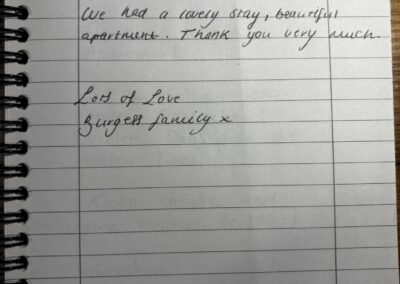 We had a lovely stay, beautiful
apartment. Thank you very much.
Lots of Love
Burgess family x